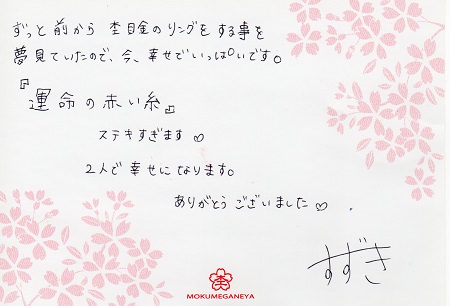 ずっと前から 杢目金のリングをする事を
夢見ていたので、今、幸せでいっぱいです。
『運命の赤い糸』
ステキすぎます♡
2人で幸せになります。
ありがとうございました♡.
すずき
杢
MOKUMEGANEYA